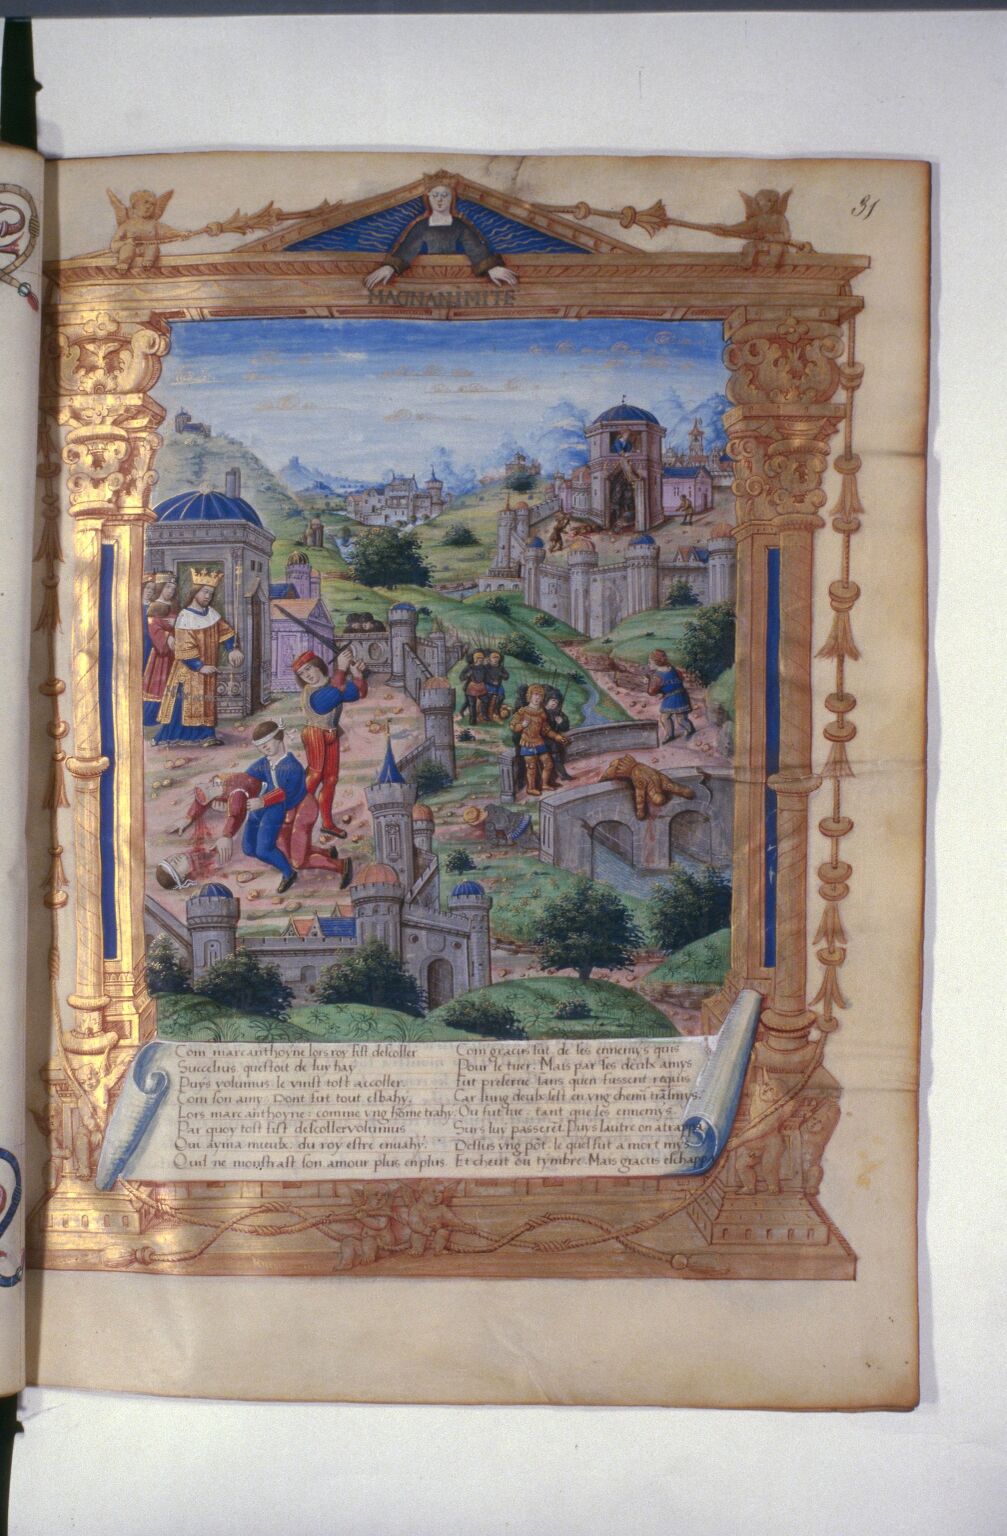 31
MAGNANIMITE
Com marcanthoyne lors roy fist descoller
Succelius, questoit de luy hay
Puys volumus le vinst tost accoller
Com son amy. Dont fut tout esbahy,
Lors marcanthoyne: comme vng hõme trahy
Par quoy tost fist descoller volumus
Qui ayma mieulx du roy estre enuahy
Quil ne monstrast son amour plus en plus.
Com gracus fut de ses ennemys quis
Pour le tuer: Mais par ses deulx amys
Fut preserue sans quen fussent requis
Car lung deulx sest en vng chemĩ trãsmys.
Ou fut tue: tant que ses ennemys
Surs luy passerẽt. Puys lautre on atrappa
Dessus vng põt, lequel fut a mort mys
Et cheut ou tymbre. Mais gracus eschappa